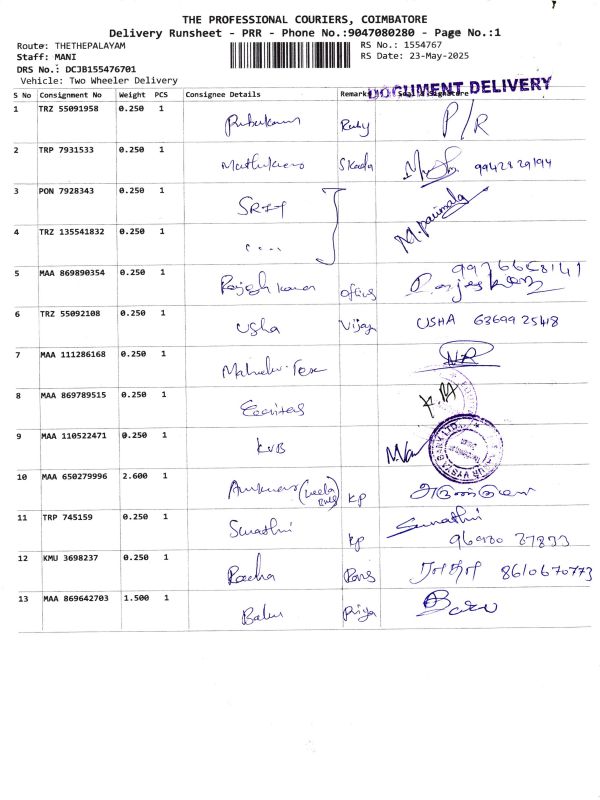 THE PROFESSIONAL COURIERS, COIMBATORE
Delivery Runsheet - PRR - Phone No.:9047080280 - Page No.:1
Route: THETHEPALAYAM
RS No.: 1554767
Staff: MANI
RS Date: 23-May-2025
DRS No.: DCJB155476701
Vehicle: Two Wheeler Delivery
DOCUMENT DELIVERY
S No Consignment No Weight PCS Consignee Details Remarks Seal & Signature
1 TRZ 55091958 0.250 1 P/R
2 TRP 7931533 0.250 1 Muthukumar 9942829194
3 PON 7928343 0.250 1 M. parimala
4 TRZ 135541832 0.250 1
5 MAA 869890354 0.250 1 Rajesh kumar office
6 TRZ 55092108 0.250 1 Usha Vijay USHA 6369925418
7 MAA 111286168 0.250 1 NR
8 MAA 869789515 0.250 1 Equitas
9 MAA 110522471 0.250 1 KVB
10 MAA 650279996 2.600 1 KP
11 TRP 745159 0.250 1 Sumathi KP Sumathi
12 KMU 3698237 0.250 1 Radha ராதா 8610670773
13 MAA 869642703 1.500 1 Babu Priya Babu